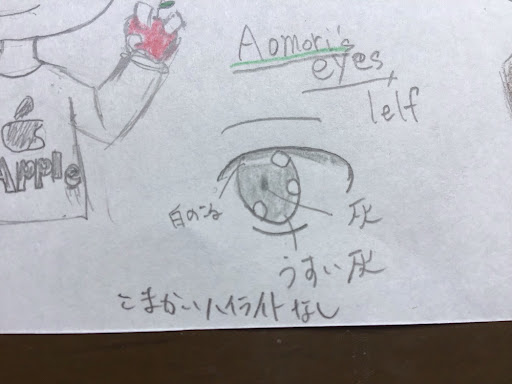 Aomori's
eyes
lelf
Apple
灰
うすい灰
こまかいハイライトなし